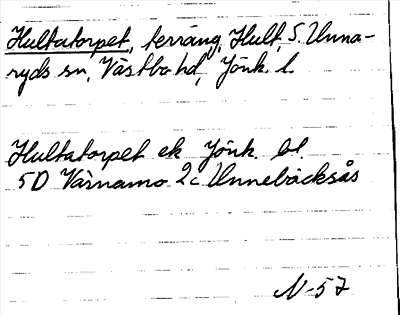 Hultatorpet, terräng, Hult, S. Unna-
ryds sn, Västbo hd, Jönk. l.
Hultatorpet ek Jönk. bl.
5D Värnamo 2c Unnebäcksås
N-57